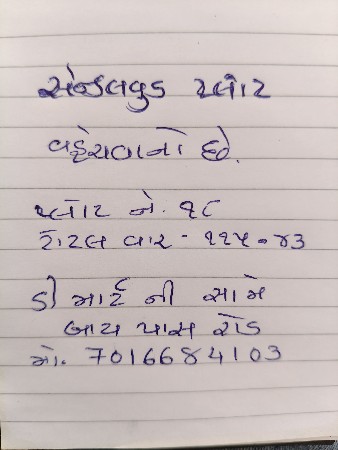 એન્જલવુડ પ્લોટ
વહેચવાનો છે.
પ્લોટ નં. ૧૮
ટોટલ વાર - ૧૧૫=૪૩
ડી માર્ટ ની સામે
બાય પાસ રોડ
મો. 7016684103